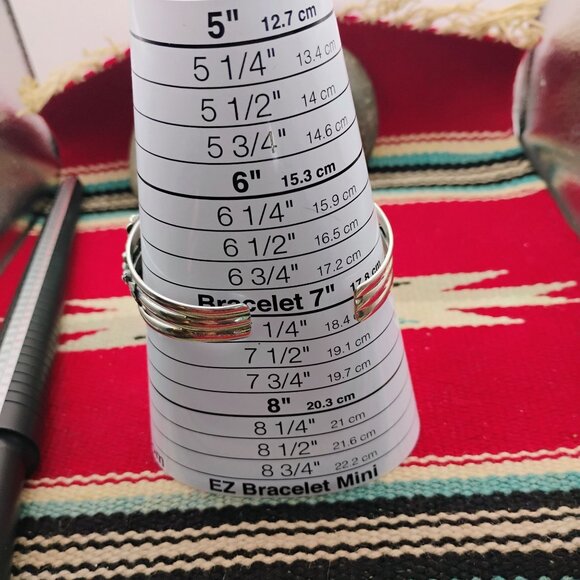 5" 12.7 cm
5 1/4" 13.4 cm
5 1/2" 14 cm
5 3/4" 14.6 cm
6" 15.3 cm
6 1/4" 15.9 cm
6 1/2" 16.5 cm
6 3/4" 17.2 cm
Bracelet 7" 17.8 cm
1/4" 18.4
7 1/2" 19.1 cm
7 3/4" 19.7 cm
8" 20.3 cm
8 1/4" 21 cm
8 1/2" 21.6 cm
8 3/4" 22.2 cm
EZ Bracelet Mini